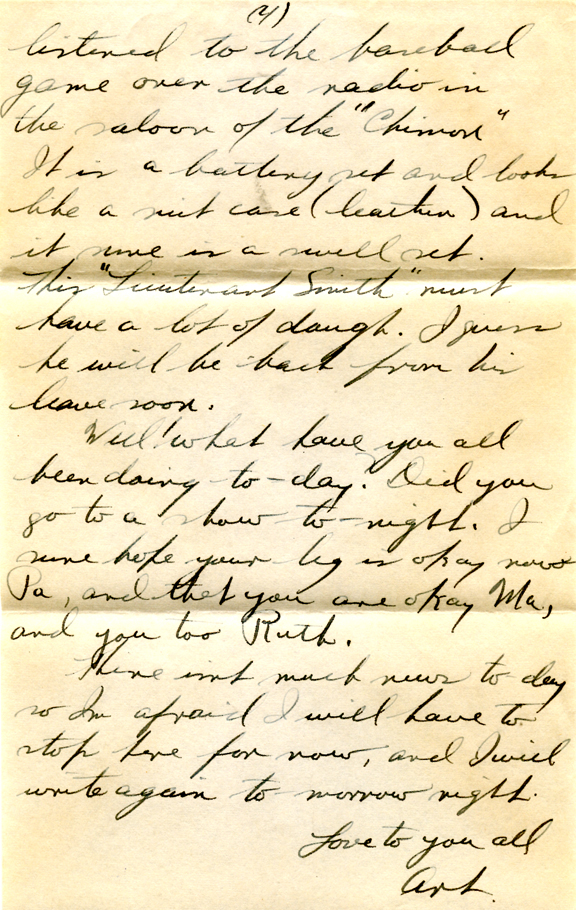 (4)
listened to the baseball
game over the radio in
the saloon of the "Chimon"
It is a battery set and looks
like a suit case (leather) and
it sure is a swell set.
This "Lieutenant Smith" must
have a lot of daugh. I guess
he will be back from his
leave soon.
Well! what have you all
been doing to-day? Did you
go to a show to-night. I
sure hope your leg is okay now
Pa, and that you are okay Ma,
and you too Ruth.
There isnt much news to day
so Im afraid I will have to
stop here for now, and I will
write again to morrow night.
Love to you all
Art.